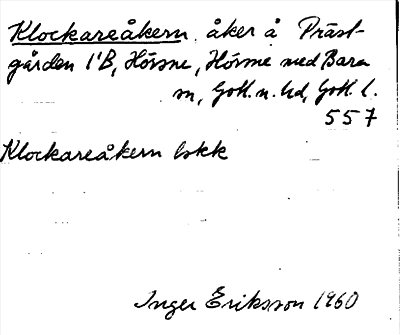 Klockareåkern, åker å Präst-
gården 1'B, Hörsne, Hörsne med Bara
sn, Gotl. n. hd, Gotl. l.
557
Klockareåkern bskk
Inger Eriksson 1960